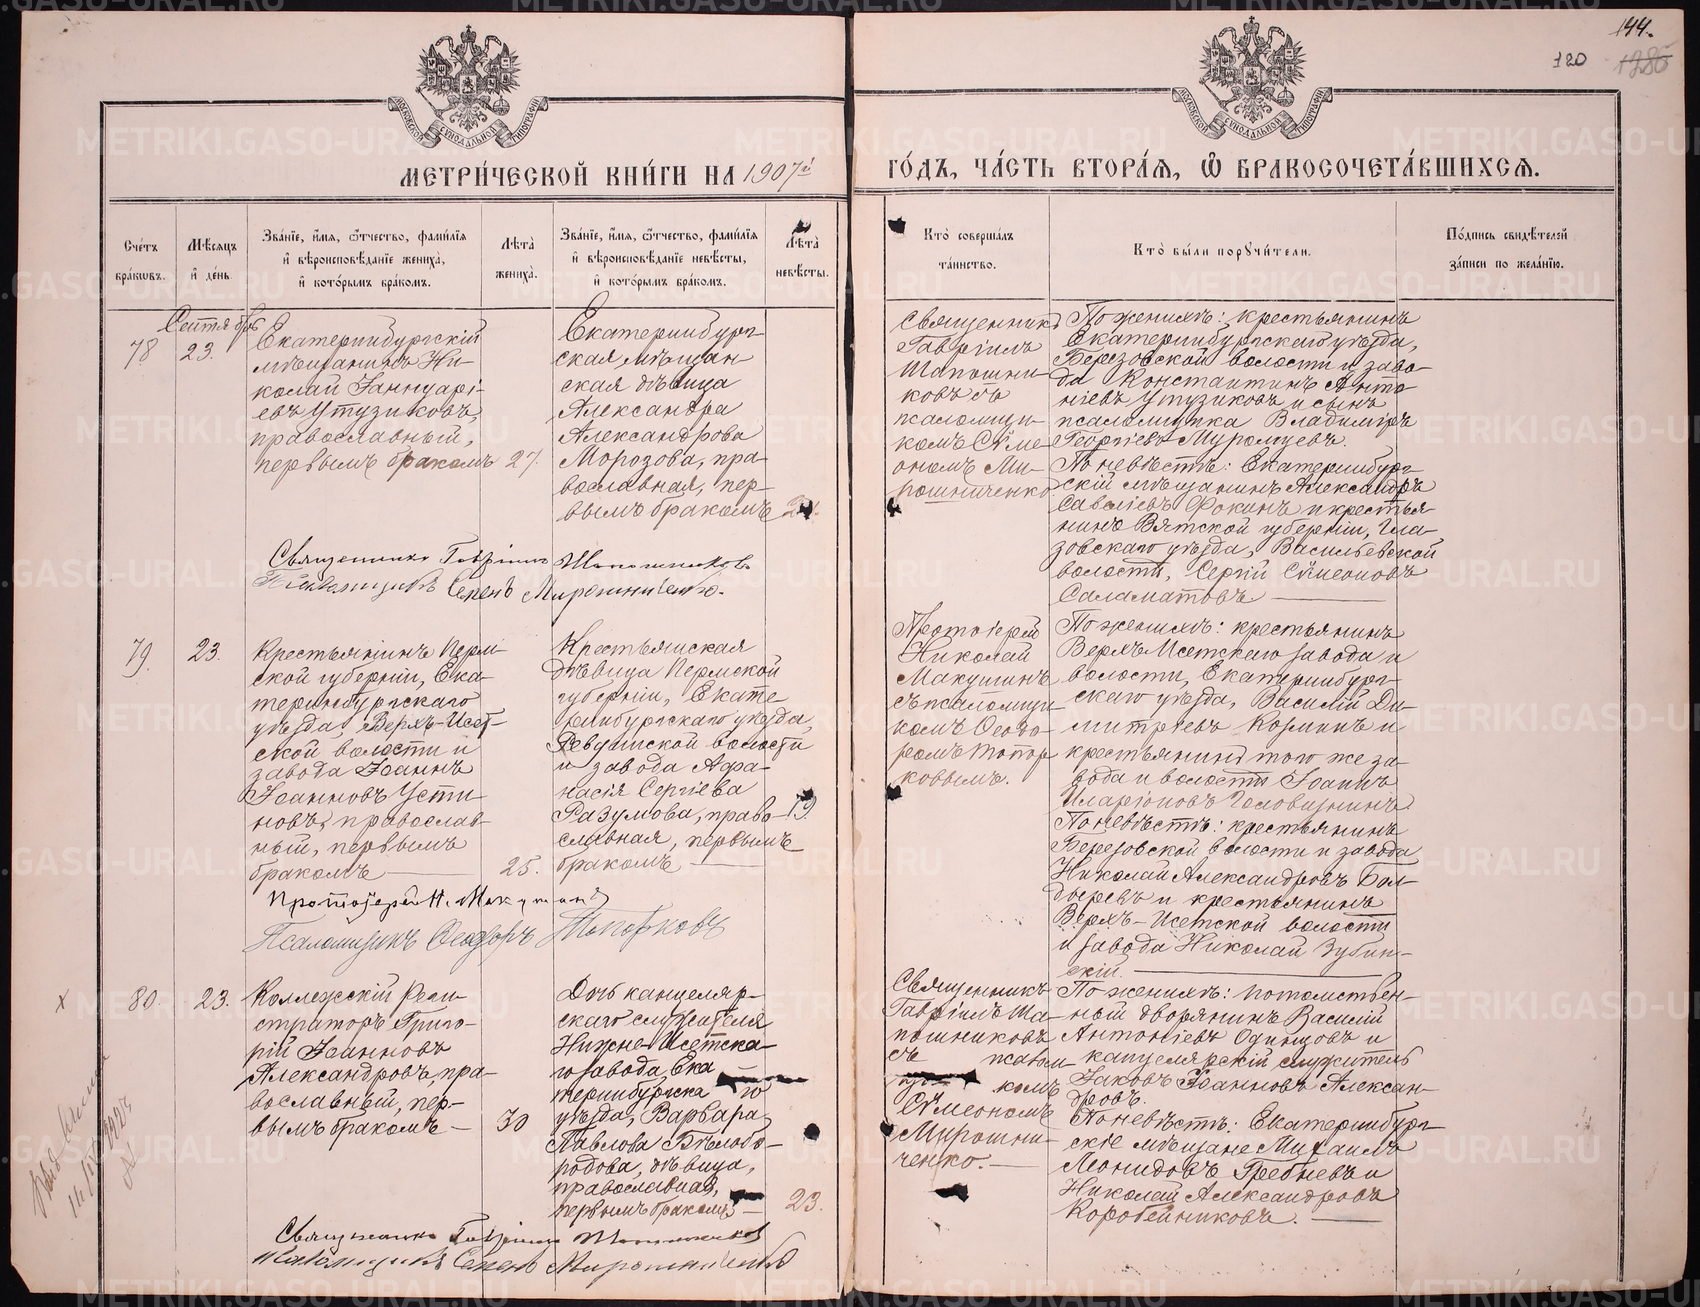 144.
120 1286
МОСКОВСКОЙ СѴНОДАЛЬНОЙ ТИПОГРАФІИ
МОСКОВСКОЙ СѴНОДАЛЬНОЙ ТИПОГРАФІИ
МЕТРИ́ЧЕСКОЙ КНИ́ГИ НА 1907й
ГО́ДЪ, ЧА́СТЬ ВТОРА́Я, Ѽ БРАКОСОЧЕТА́ВШИХСЯ.
Сче́тъ
бра́ковъ.
Мѣ́сяцъ
и де́нь.
Зва́нїе, и́мя, ѻ́тчество, фами́лїя
и҆ вѣроисповѣ́данїе жениха̀,
и҆ кото́рымъ бра́комъ.
Лѣта̀
жениха̀.
Зва́нїе, и́мя, ѻ́тчество, фами́лїя
и҆ вѣроисповѣ́данїе невѣ́сты,
и҆ кото́рымъ бра́комъ.
Лѣта̀
невѣ́сты.
Кто̀ соверша́лъ
та́инство.
Кто̀ бы́ли порꙋчи́тели.
По́дпись свидѣ́телей
за́писи по жела́нїю.
Сентябрь
78
23.
Екатеринбургскій
мѣщанинъ Ни-
колай Іаннуарі-
евъ Утузиковъ,
православный,
первымъ бракомъ
27.
Екатеринбург-
ская мѣщан
ская дѣвица
Александра
Александрова
Морозова, пра-
вославная, пер-
вымъ бракомъ
Священникъ
Гавріилъ
Шапошни-
ковъ съ
псаломщи-
комъ Сѵме-
ономъ Ми-
рошниченко
По женихѣ: крестьянинъ
Екатеринбургскаго уѣзда,
Березовской волости и заво-
да Константинъ Анто-
ніевъ Утузиковъ и сынъ
псаломщика Владиміръ
Георгіевъ Муромцевъ.
По невѣстѣ: Екатеринбург-
скій мѣщанинъ Александръ
Савеліевъ Фокинъ и крестья-
нинъ Вятской губерніи, Гла-
зовскаго уѣзда, Васильевской
волости, Сергій Сѵмеоновъ
Саламатовъ
Священникъ Гавріилъ Шапошниковъ
Псаломщикъ Семенъ Мирошниченко.
79.
23.
Крестьянинъ Перм-
ской губерніи, Ека-
теринбургскаго
уѣзда, Верхъ-Исет-
ской волости и
завода Іоаннъ
Іоанновъ Усти-
новъ, православ-
ный, первымъ
бракомъ
25.
Крестьянская
дѣвица Пермской
губерніи, Екате-
ринбургскаго уѣзда,
Ревдинской волости
и завода Афа-
насія Сергіева
Разумова, право-
славная, первымъ
бракомъ
19.
Протоіерей
Николай
Макушинъ
съ псаломщи-
комъ Ѳеодо-
ромъ Топор
ковымъ.
По женихѣ: крестьянинъ
Верхъ Исетскаго завода и
волости, Екатеринбург-
скаго уѣзда, Василій Ди-
митріевъ Козминъ и
крестьянинъ того же за-
вода и волости Іоаннъ
Иларіоновъ Головизнинъ
По невѣстѣ: крестьянинъ
Березовской волости и завода
Николай Александровъ Бол-
дыревъ и крестьянинъ
Верхъ-Исетской волости
и завода Николай Зубин-
скій.
Протоіерей Н. Макушинъ
Псаломщикъ Ѳеодоръ Топорковъ
80.
23.
Коллежскій Реги-
страторъ Григо-
рій Іоанновъ
Александровъ, пра-
вославный, пер-
вымъ бракомъ
30
Дочь канцеляр-
скаго служителя
Нижне-Исетска-
го завода, Ека
теринбургска го
уѣзда, Варвара
Павлова Бѣлобо-
родова, дѣвица,
православная,
первымъ бракомъ
23.
Священникъ
Гавріилъ Ша-
пошниковъ
съ псалом
комъ
Сѵмеономъ
Мирошни-
ченко.
По женихѣ: потомствен-
ный дворянинъ Василій
Антоніевъ Одинцовъ и
канцелярскій служитель
Іаковъ Іоанновъ Алексан-
дровъ.
По невѣстѣ: Екатеринбург-
скіе мѣщане Михаилъ
Леонидовъ Гребневъ и
Николай Александровъ
Коробейниковъ.
Священникъ Гавріилъ Шапошниковъ
Псаломщикъ Семенъ Мирошниченко
METRIKI.GASO-URAL.RU